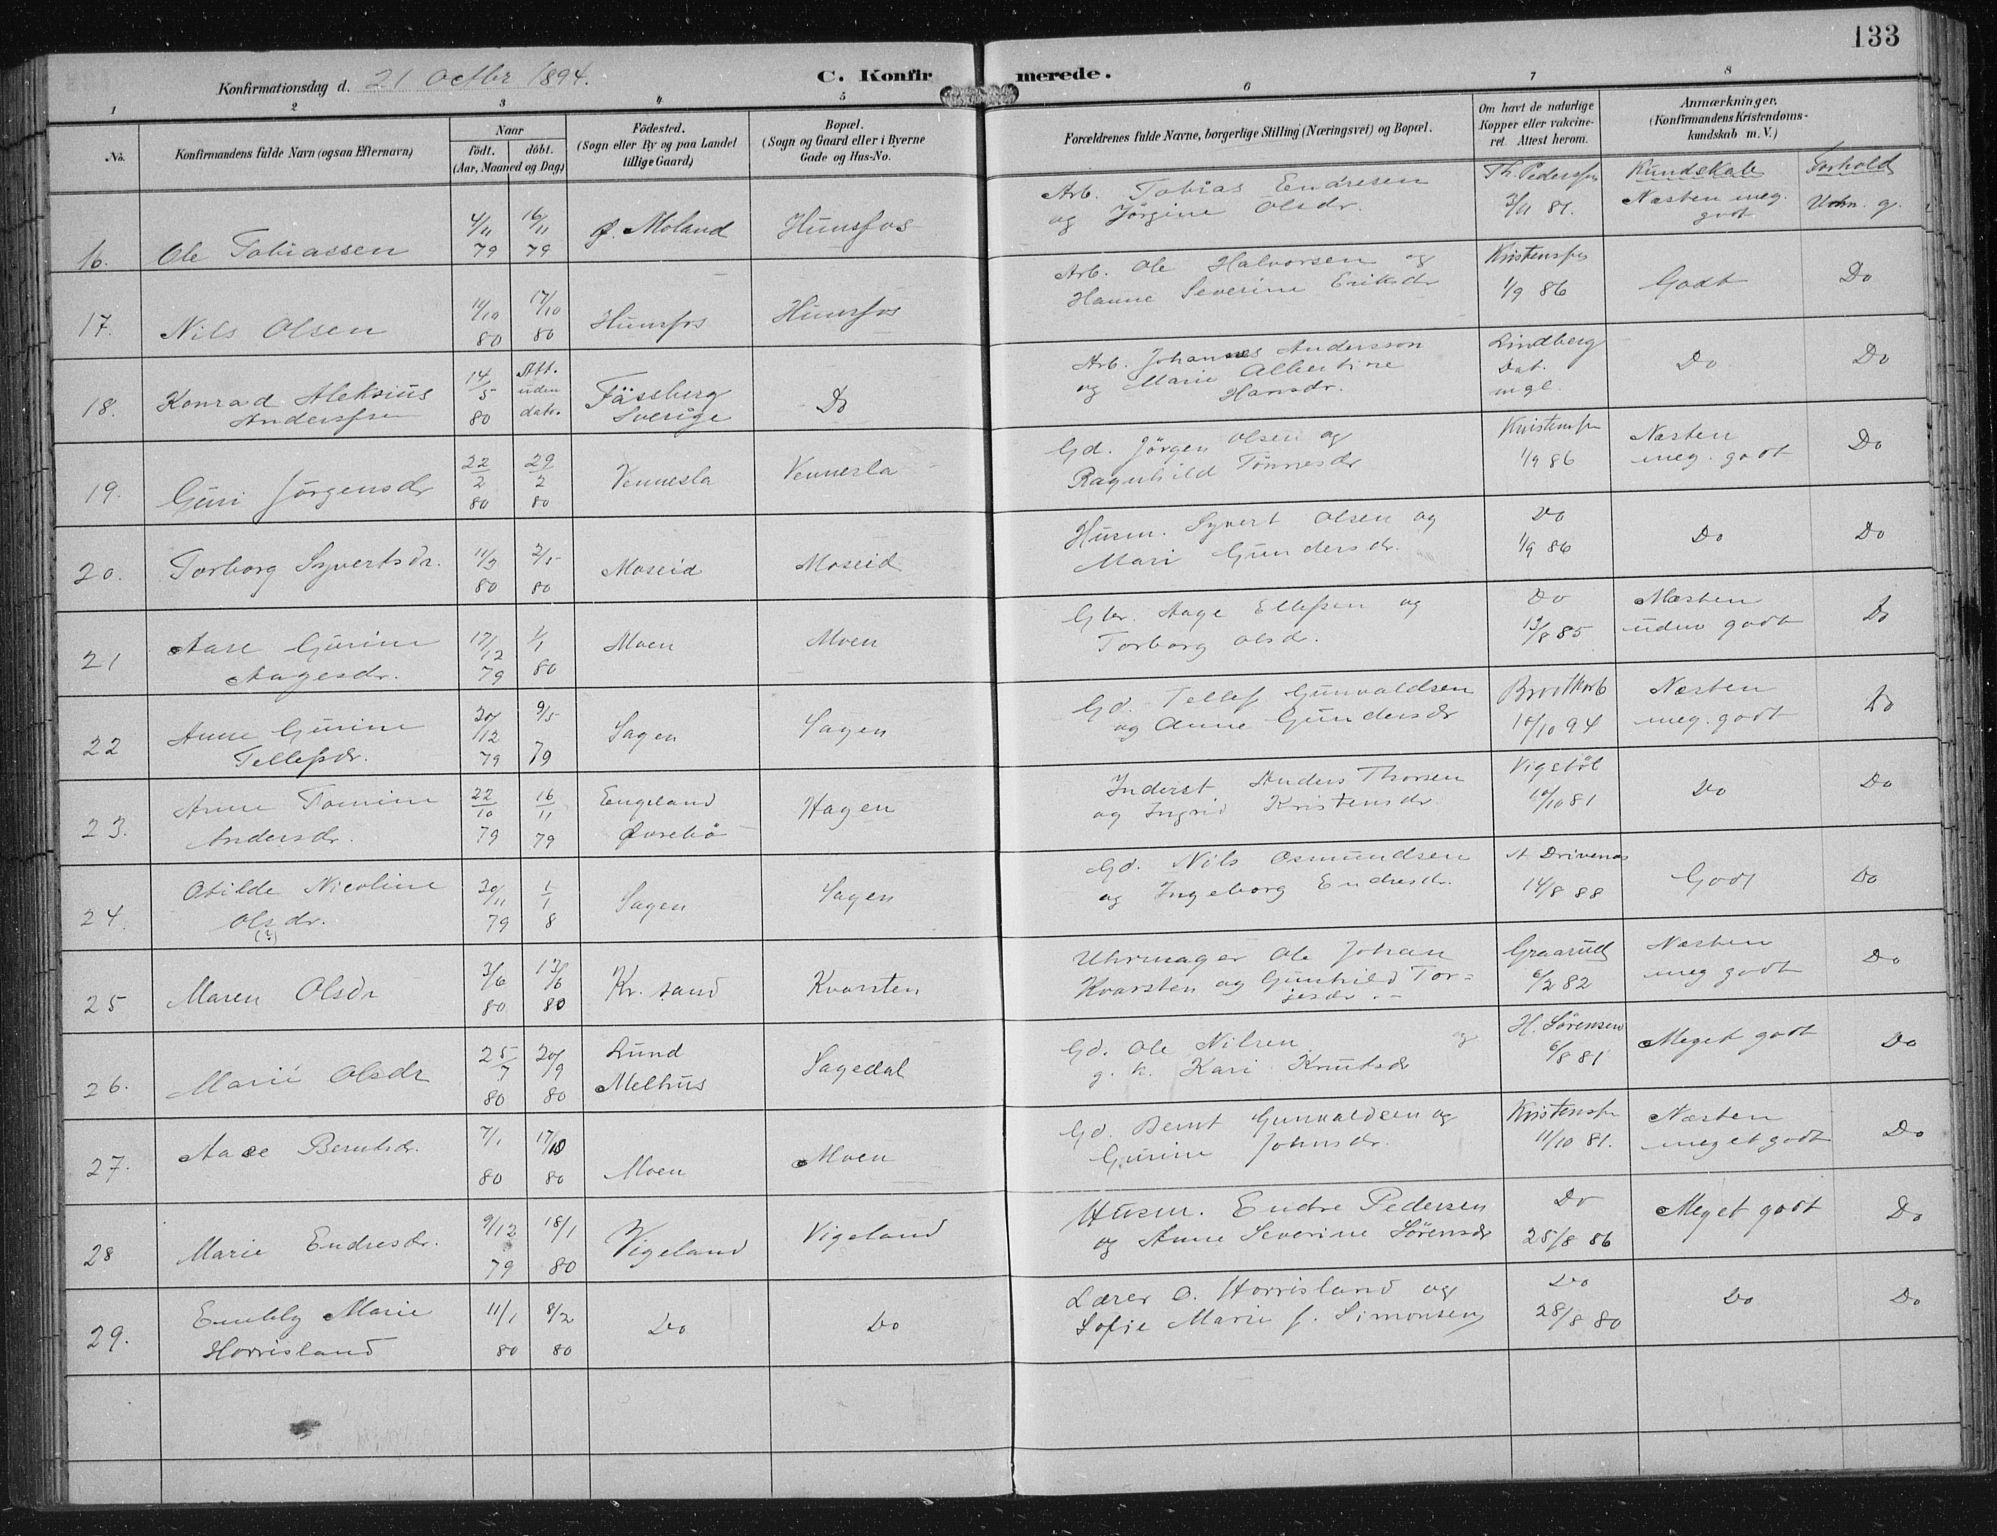 133
Konfirmationsdag d. 21 Octbr 1894.
C. Konfirmerede.
1 2 3 4 5 6 7 8
No.
Konfirmandens fulde Navn (ogsaa Efternavn)
Naar
født. døbt.
(Aar, Maaned og Dag)
Fødested.
(Sogn eller By og paa Landet
tillige Gaard)
Bopæl.
(Sogn og Gaard eller i Byerne
Gade og Hus-No.
Forældrenes fulde Navne, borgerlige Stilling (Næringsvei) og Bopæl.
Om havt de naturlige
Kopper eller vakcine-
ret. Attest herom.
Anmærkninger.
(Konfirmandens Kristendoms-
kundskab m. V.)
Kundskab Forhold
16. Ole Tobiassen
4/11 79 16/11 79
Ø. Moland
Hunsfos
Arb. Tobias Endresen
og Jørgine Olsdr.
Th. Pedersen
81.
Næsten meg.
godt
Udm. g.
17. Nils Olsen
14/10 80 17/10 80
Hunsfos
Hunsfos
Arb. Ole Halvorsen og
Hanne Severine Eriksdr
Kristensen
1/9 86
Godt
Do
18. Konrad Aleksius
Andersen
14/5 80 Att. uden dat.
Fässberg
Sverige
Do
Arb. Johannes Andersson
og Marie Albertine
Hansdr.
Lindberg
Dat.
mgl.
Do
Do
19. Guri Jørgensdr
22/2 80 29/2 80
Vennesla
Vennesla
Gd. Jörgen Olsen og
Ragnhild Tønnesdr
Kristensen
1/9 86
Næsten
meg. godt
Do
20. Torborg Syvertsdr.
11/3 80 2/5 80
Moseid
Moseid
Husm. Syvert Olsen og
Mari Gundersdr.
Do
1/9 86
Do
Do
21 Aase Gurine
Aagesdr.
17/12 79 1/1 80
Moen
Moen
Gbr. Aage Ellefsen og
Torborg Olsdr.
Do
13/8 85
Næsten
udm godt
Do
22 Anne Gurine
Tellefsdr.
20/12 79 9/5 79
Sagen
Sagen
Gd. Tellef Gunvaldsen
og Anne Gundersdr
10/10 94
Næsten
meg. godt
Do
23. Anne Tomine
Andersdr.
22/10 79 16/11 79
Engeland
Øvrebø
Hagen
Inderst Anders Thorsen
og Ingrid Kristensdr.
Vigstøl
10/10 81
Do
Do
24. Otilde Nicoline
Olsdr.
(?)
20/11 79 1/1 8
Sagen
Sagen
Gd. Nils Osmundsen
og Ingeborg Endresdr.
A Drivenes
14/8 88
Godt
Do
25 Maren Olsdr
3/6 80 13/6 80
Kr. sand
Kvarsten
Uhrmager Ole Johan
Kvarsten og Gunhild Tor-
jesdr.
Graarud
6/2 82
Næsten
meg godt
Do
26. Marie Olsdr
25/7 80 20/9 80
Lund
Melhus
Sagedal
Gd. Ole Nilsen og
g. k. Kari Knutsdr
H. Sørensen
6/8 81
Meget godt
Do
27. Aase Berntsdr.
7/1 80 17/10 80
Moen
Moen
Gd. Bernt Gunvaldsen og
Gurine Johnsdr.
Kristensen
11/10 81.
Næsten
meget godt
Do
28 Marie Endresdr.
9/12 79 18/1 80
Vigeland
Vigeland
Husm. Endre Pedersen
og Anne Severine Sørensdr
Do
25/8 86
Meget godt
Do
29. Emely Marie
Horrisland
11/1 80 8/2 80
Do
Do
Lærer O. Horrisland og
Sofie Marie f. Simonsen
Do
28/8 80
Do
Do